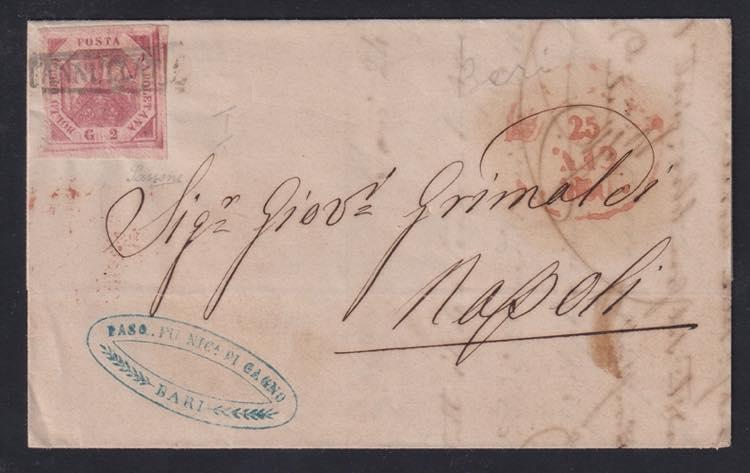 POSTA
NAPOLETANA
BOLLO DELLA
G 2
ANNULLATO
Bari
I
25
Sigr Giovi Grimaldi
Napoli
PASQ. FU NICa. DI CAGNO
BARI